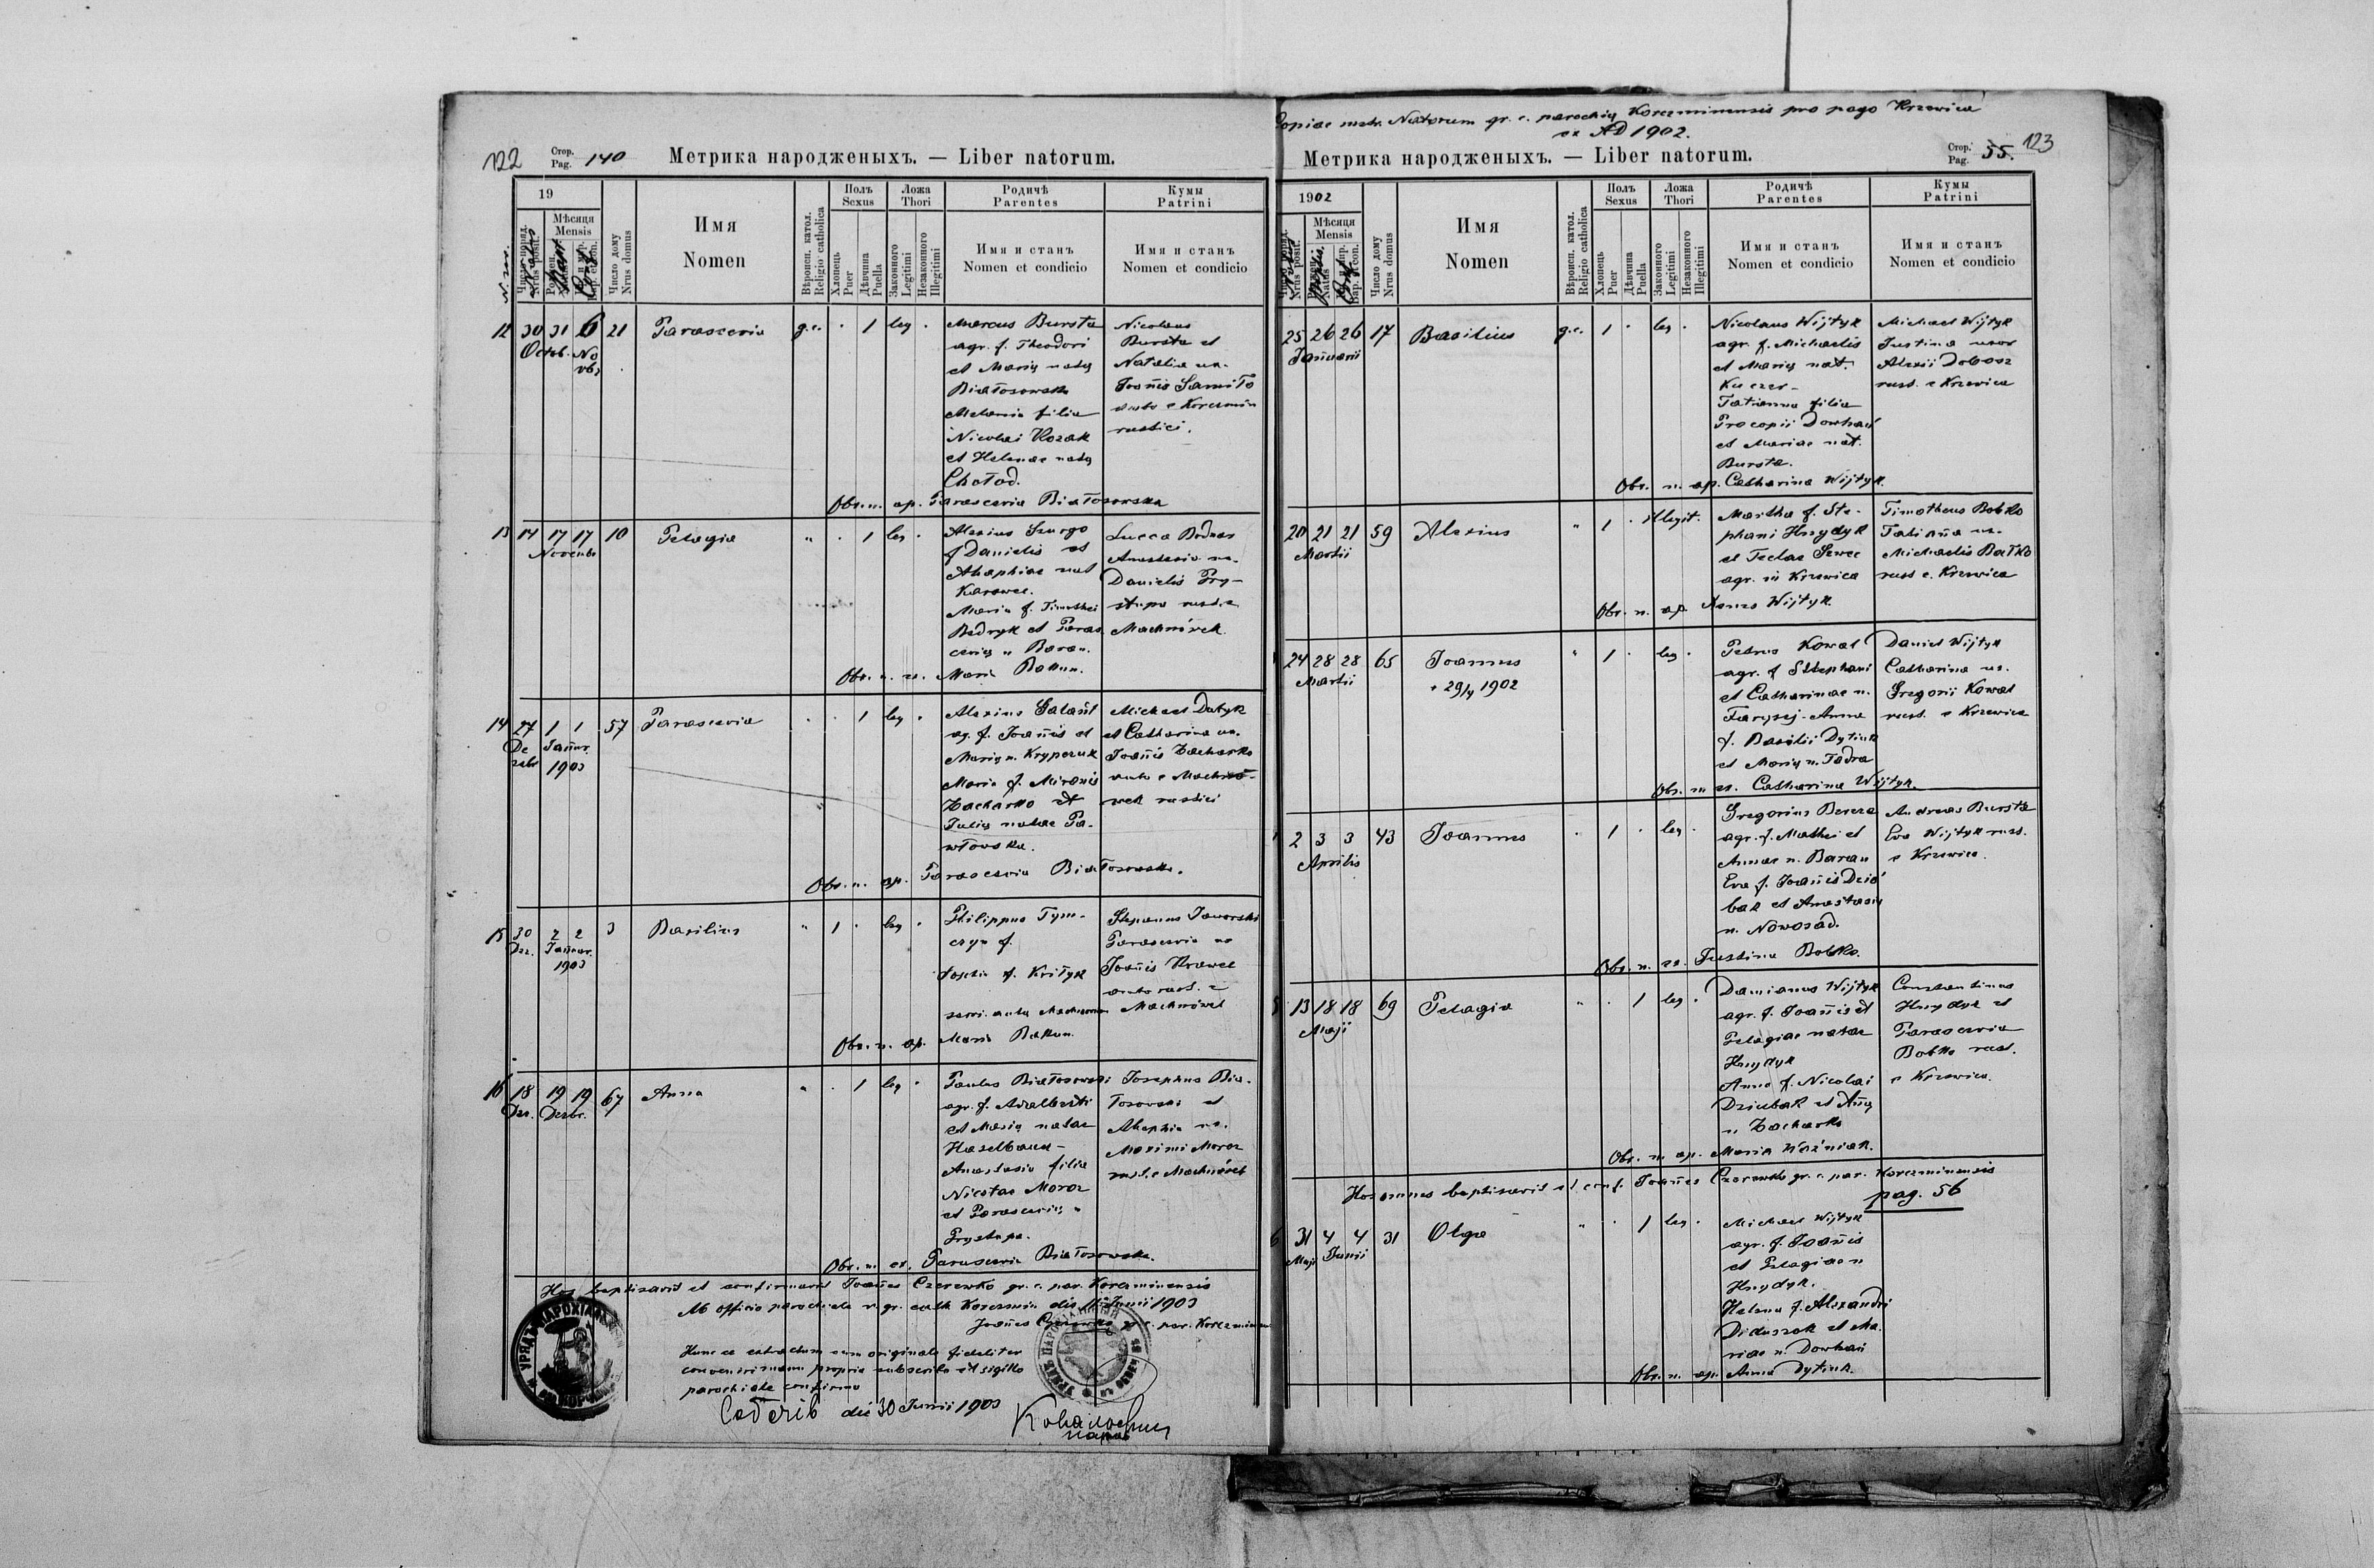 122
Стор.
Pag. 140
Метрика народженыхъ. — Liber natorum.
19
Мѣсяця
Mensis
Число дому
Nrus domus
Имя
Nomen
Вѣроисп. катол.
Religio catholica
Полъ
Sexus
Хлопець
Puer
Дѣвчина
Puella
Ложа
Thori
Законного
Legitimi
Незаконного
Illegitimi
Родичѣ
Parentes
Имя и станъ
Nomen et condicio
Кумы
Patrini
Имя и станъ
Nomen et condicio
12 30 31 6 21 Parascevia g.c. . 1 leg .
Octob. No
vb.
Marcus Bursta
agr. f. Theodori
et Marię natę
Białosowska
Melania filia
Nicolai Kozak
et Helenae natę
Chołod.
Nicolaus
Bursta et
Natalia ux.
Joanis Samiło
ambo e Korczmin
rustici.
Obs. n. ap. Parascevia Białosowska
13 14 17 17 10 Pelagia " . 1 leg .
Novembr
Alexius Szurgo
f Danielis et
Ahaphiae nat
Karowec.
Maria f. Timothei
Bedryk et Paras
cevię n Baran.
Lucca Bodnar
Anastasia ux.
Danielis Pry-
stupa rust. e
Machnówek.
Obs. n. ex. Maria Bakun.
14 27 1 1 57 Parascevia . . 1 leg .
De Januar.
cebr 1903
Alexius Salan
ag. f. Joanis et
Marię n. Krypczuk
Maria f. Mironis
Zacharko et
Julię natae Pa-
włowska.
Michael Datyk
et Catharina ux.
Joanis Zacharko
ambo e Machnó-
wek rustici
Obs. n. ap. Parascevia Białosowska.
15 30 2 2 3 Basilius " 1 . leg .
Dec. Januar.
1903
Philippus Tym-
czyn f.
f. Kityk
Stephanus Jaworski
Parascevia ux
Joanis Krawec
ambo rust. e
Machnówek
Obs. n. ap. Maria Bakun.
16 18 19 19 67 Anna " . 1 leg .
Dec. Decbr.
Paulus Białosowski
agr. f. Adalberti
et Marię natae
Haselbauer -
Anastasia filia
Nicetae Moroz
et Parascevię n
Prystupa.
Josephus Bia-
łosowski et
Ahaphia ux.
Maximi Moroz
rust. e Machnówek
Obs. n. ex. Parascevia Białosowska.
Hos baptisavit et confirmavit Joanes Czerewko gr. c. par. Korczminensis
Ab officio parochiale r. gr. cath Korczmin die 11 Junii 1903
Joanes Czerewko gr. c. par. Korczminensis
Hunc ce extractum cum originale fideliter
convenire manu propria subscribo et sigillo
parochiale confirmo
die 30 Junii 1903
Copiae metr. Natorum gr. c. parochię Korczminensis pro pago Krzewica
ex AD 1902.
Метрика народженыхъ. — Liber natorum.
Стор.
Pag. 55. 123
1902
Мѣсяця
Mensis
Число дому
Nrus domus
Имя
Nomen
Вѣроисп. катол.
Religio catholica
Полъ
Sexus
Хлопець
Puer
Дѣвчина
Puella
Ложа
Thori
Законного
Legitimi
Незаконного
Illegitimi
Родичѣ
Parentes
Имя и станъ
Nomen et condicio
Кумы
Patrini
Имя и станъ
Nomen et condicio
25 26 26 17 Basilius g.c. 1 . leg .
Januarii
Nicolaus Wijtyk
agr. f. Michaelis
et Marię nat.
Kuczer -
Tatianna filia
Procopii Dowhań
et Mariae nat.
Bursta.
Michael Wijtyk
Justina uxor
Alexii Dobosz
rust. e Krzewica
Obs. n. ap. Catharina Wijtyk.
20 21 21 59 Alexius " 1 . illegit.
Martii
Martha f. Ste-
phani Hnydyk
et Teclae Szwec
agr. in Krzewica
Timotheus Bobko
Tatiana ux.
Michaelis Bałko
rust e. Krzewica
Obs. n. ap. Agnes Wijtyk.
24 28 28 65 Joannes " 1 . leg .
Martii
+ 29/4 1902
Petrus Kowal
agr. f Stephani
et Catharinae n.
Farysej - Anna
f. Basilii Dytiuk
et Marię n. Fedra
Daniel Wijtyk
Catharina ux.
Gregorii Kowal
rust. e Krzewica
Obs. n ex. Catharina Wijtyk.
2 3 3 43 Joannes . 1 . leg .
Aprilis
Gregorius Bereza
agr. f. Mathei et
Annae n. Baran
Eva f. Joanis Dziu
bak et Anastasię
n. Nowosad.
Andreas Bursta
Eva Wijtyk rust.
e Krzewica.
Obs. n. ex. Justina Bobko.
5 13 18 18 69 Pelagia " . 1 leg .
Maji
Damianus Wijtyk
agr. f. Joanis et
Pelagiae natae
Hnydyk
Anna f. Nicolai
Dziubak et Anę
n. Zacharko
Constantinus
Hnydyk et
Parascevia
Bobko rust.
e Krzewica.
Obs. n ap. Maria Woźniak.
Hos omnes baptisavit et conf. Joanes Czerewko gr. c. par. Korczminensis
pag. 56
6 31 4 4 31 Olga " . 1 leg .
Maji Junii
Michael Wijtyk
agr. f. Joanis
et Pelagiae n
Hnydyk.
Helena f. Alexandri
Diduszok et Ma.
riae n. Dowhań
Obs. n. ap. Anna Dytiuk.